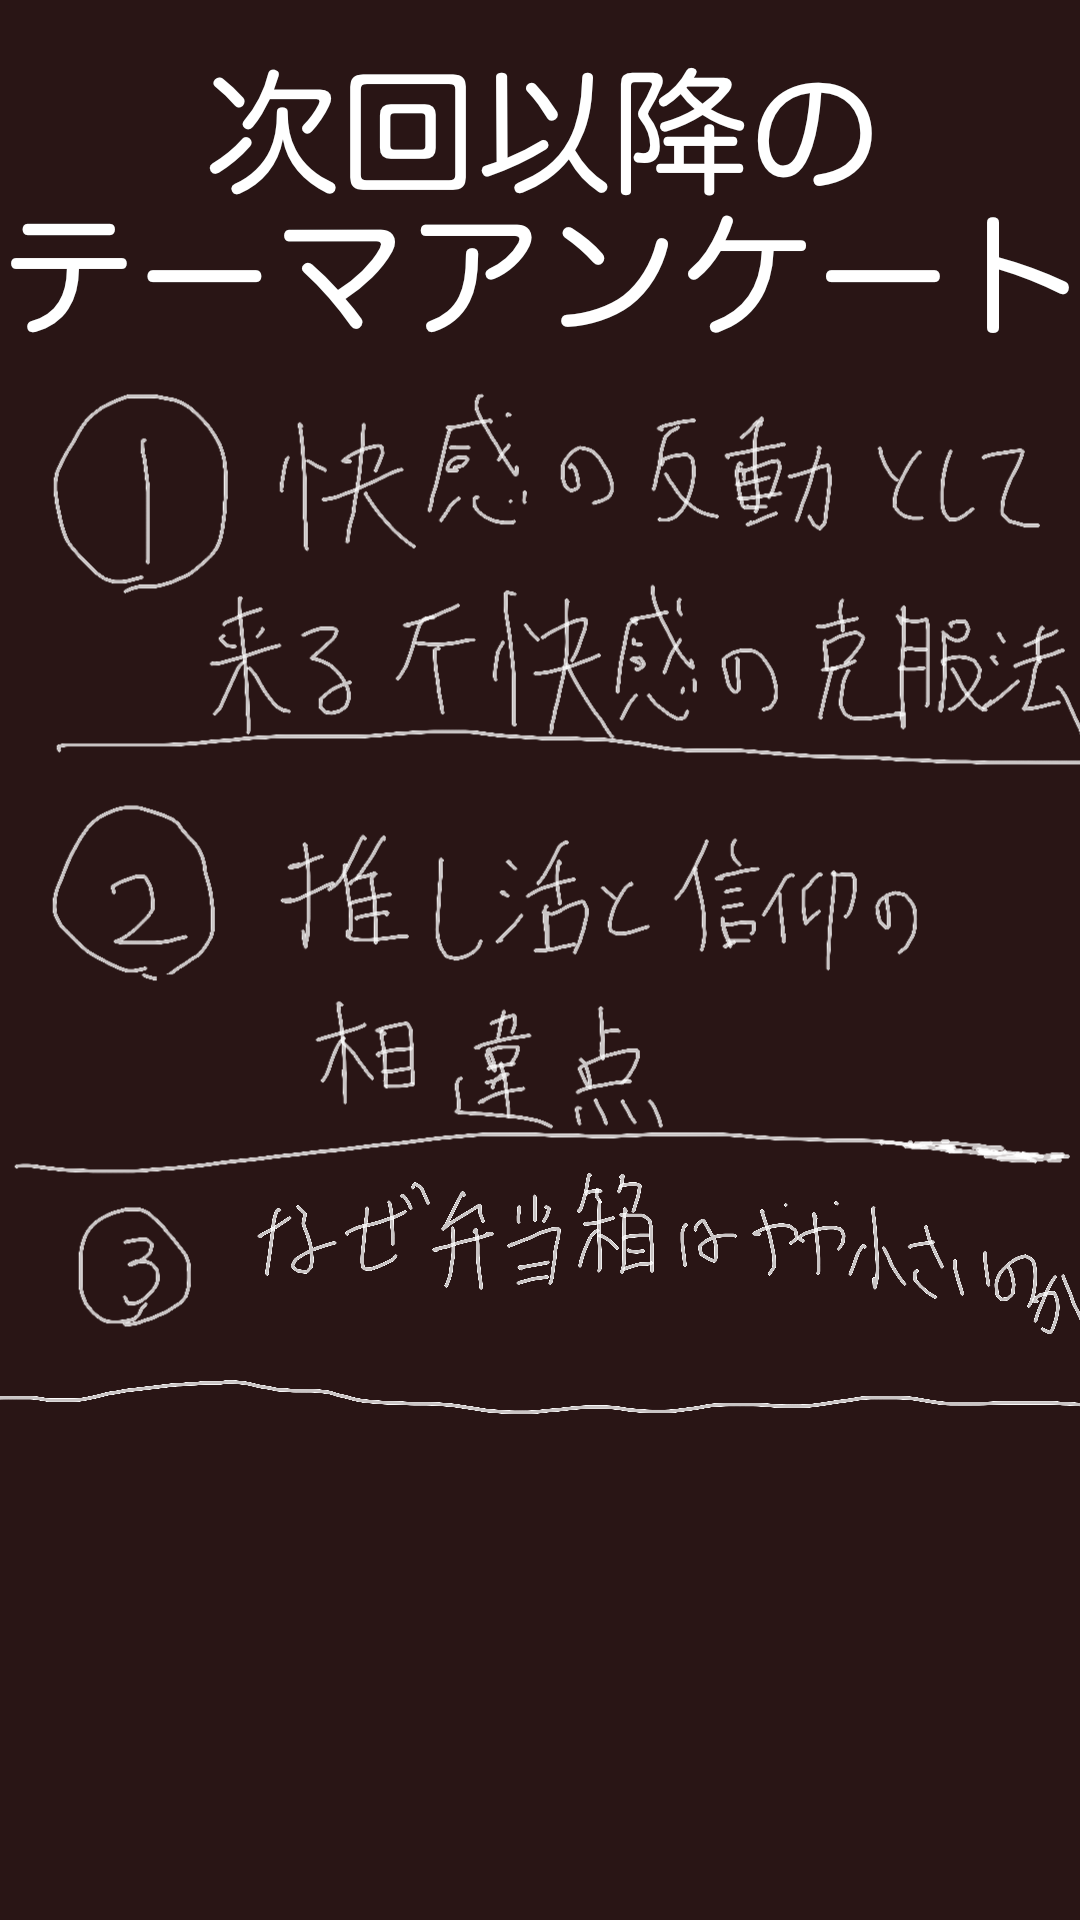 次回以降の
テーマアンケート
① 快感の反動として
来る不快感の克服法
② 推し活と信仰の
相違点
③ なぜ弁当箱はやや小さいのか